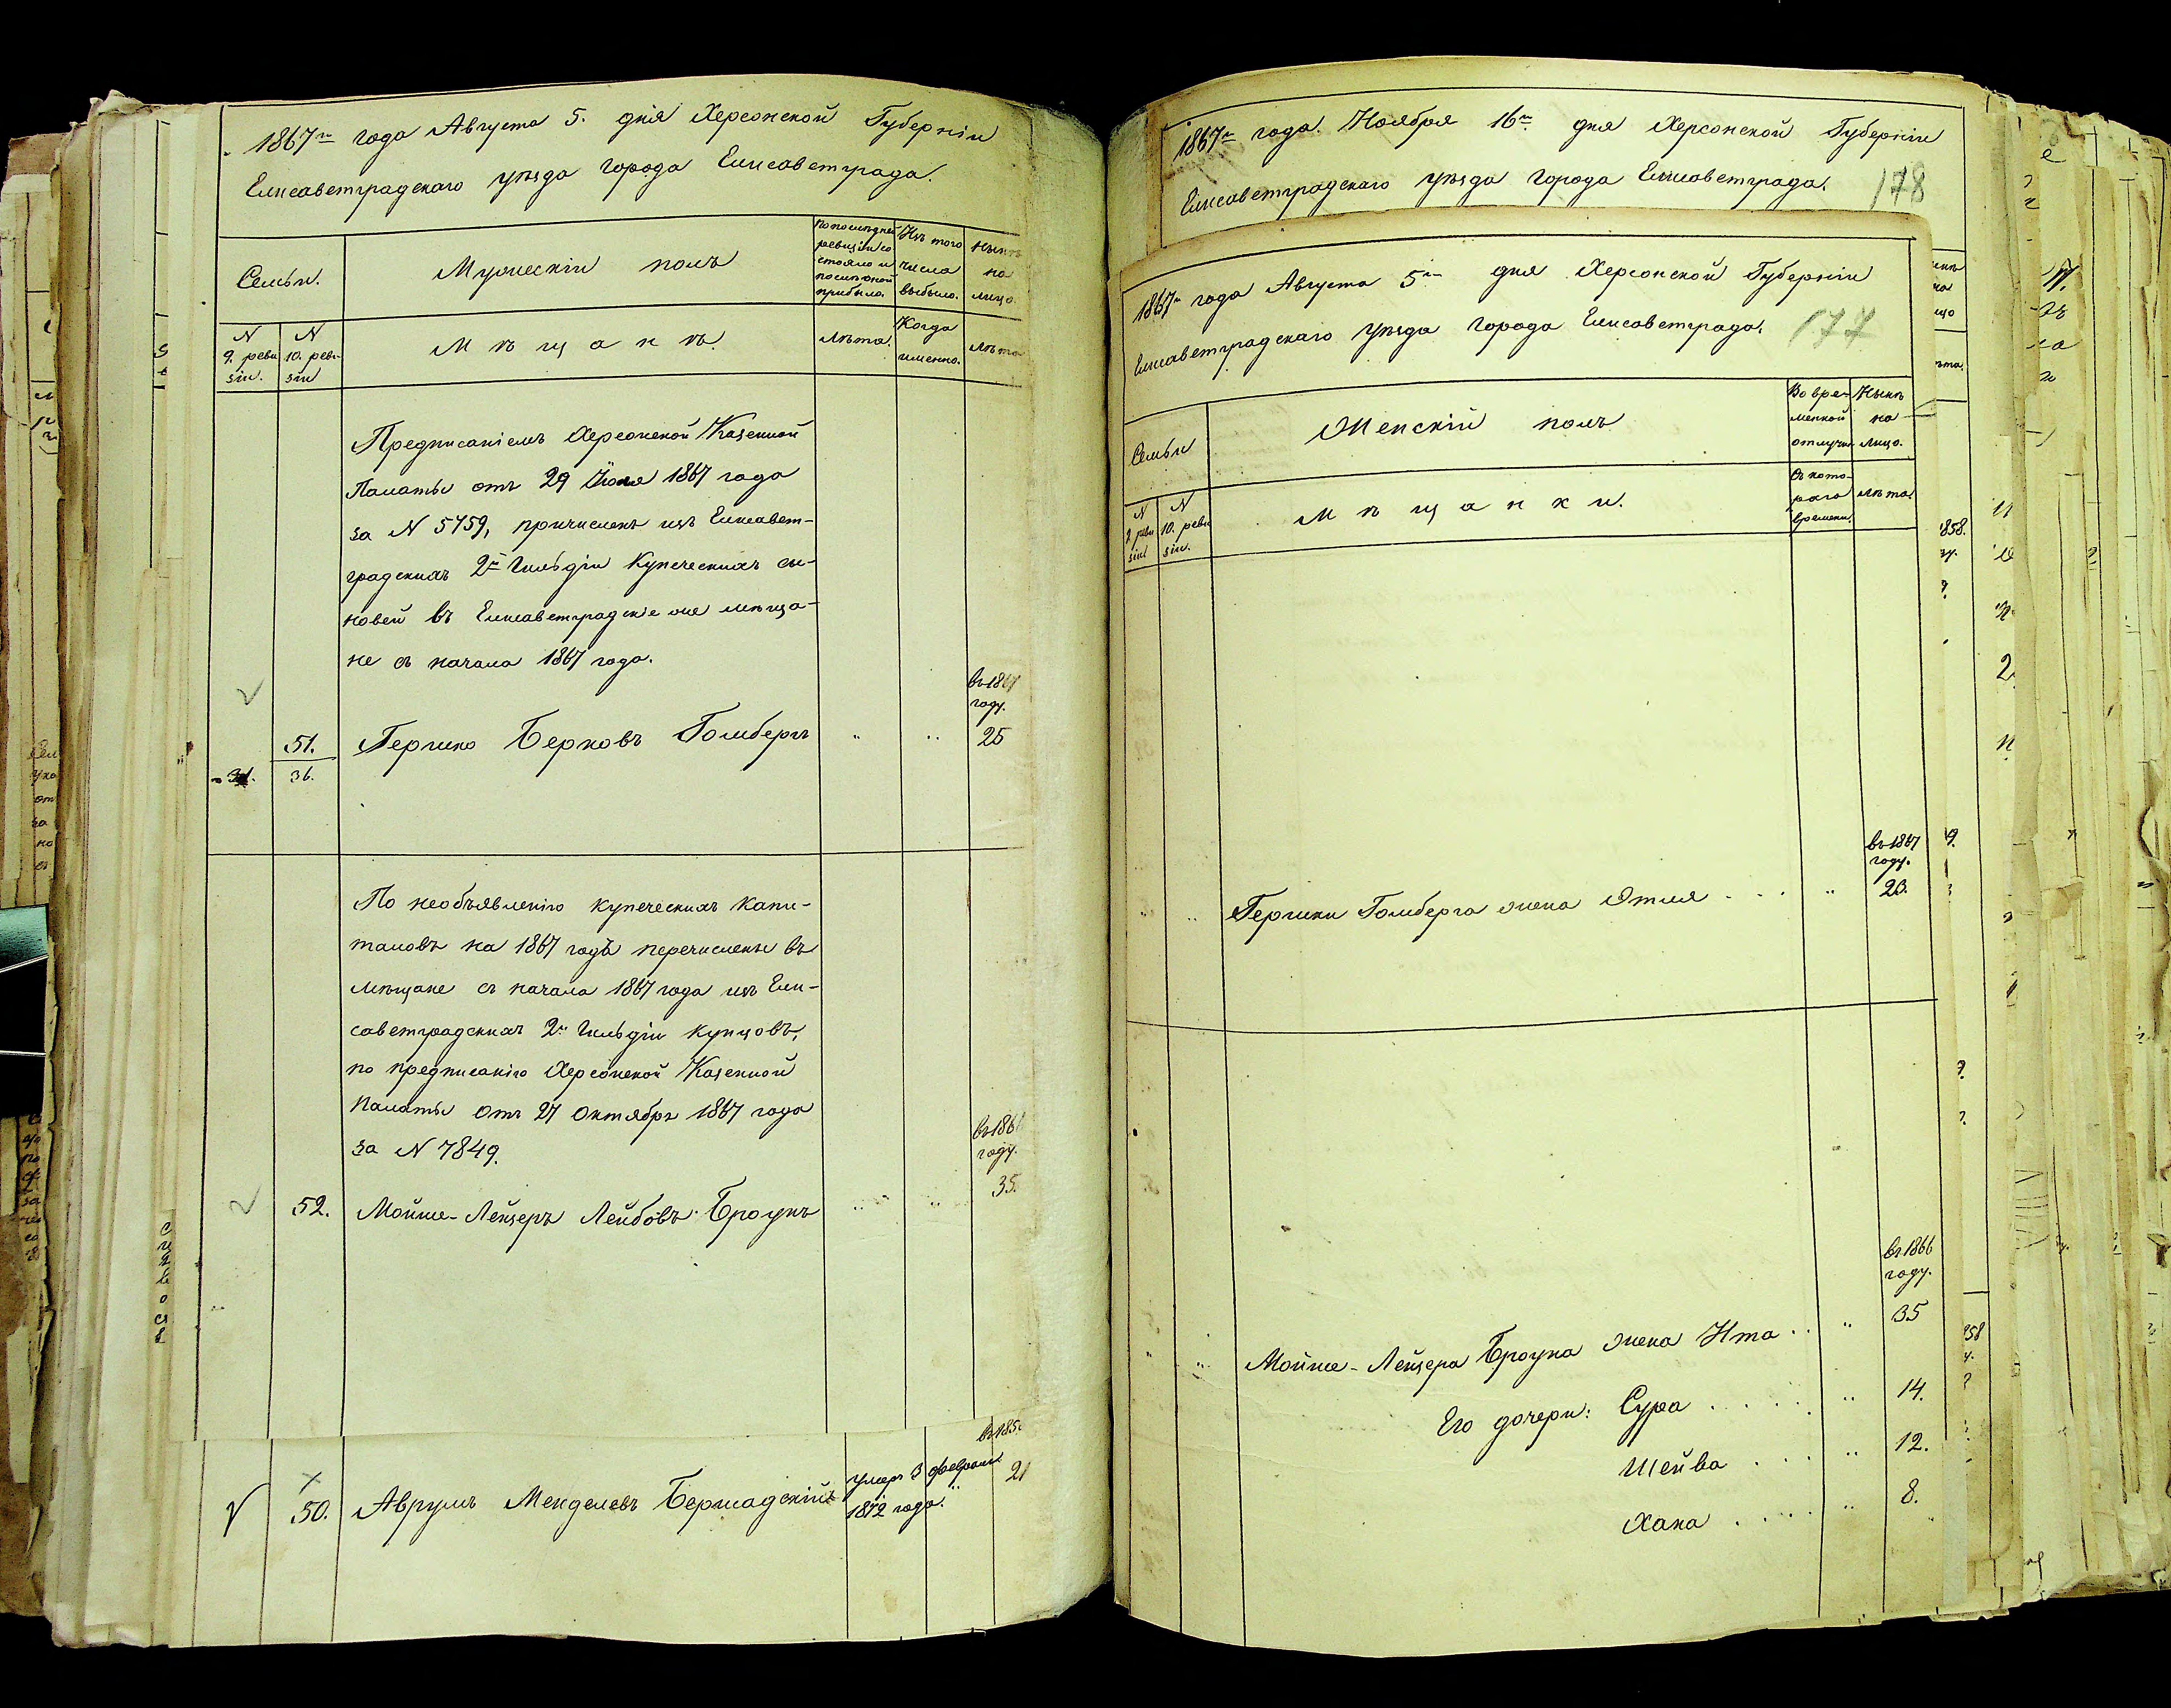 1867го года Августа 5. дня Херсонской Губерніи
Елисаветградскаго уѣзда города Елисаветграда.
Семьи.
Мужескій полъ
По послѣдней
ревизіи со
стояло и
послѣ оной
прибыло.
Изъ того
числа
выбыло.
Нынѣ
на
лицо.
N
9. реви
зіи.
N
10. реви
зіи
Мѣщанѣ.
Лѣта.
Когда
именно.
Лѣта
Предписаніемъ Херсонской Казенной
Палаты отъ 29 Іюля 1867 года
за N 5759, причислены изъ Елисавет-
градскихъ 2й Гильдіи Купеческихъ сы-
новей въ Елисаветградскіе же мѣща-
не съ начала 1867 года.
въ 1867
году.
51. Гершко Берковъ Гомбергъ " " 25
36.
По необъявленію купеческихъ капи-
таловъ на 1867 годъ перечислены въ
мѣщане съ начала 1867 года изъ Ели-
саветградскихъ 2й Гильдіи купцовъ,
по предписанію Херсонской Казенной
Палаты отъ 27 Октября 1867 года
за N 7849.
въ 186
году.
35.
52. Мойше-Лейзеръ Лейбовъ Броунъ
въ 185
50. Аврумъ Менделевъ Бершадскій умеръ 3 февраля 21
1872 года.
1867го года Ноября 16го дня Херсонской Губерніи
Елисаветградскаго уѣзда города Елисаветграда.
178
1867го года Августа 5го дня Херсонской Губерніи
Елисаветградскаго уѣзда города Елисаветграда.
177
Семьи
Женскій полъ
Во вре-
менной
отлучкѣ
Нынѣ
на
лицо.
N
9 реви
зіи
N
10. реви
зіи.
Мѣщанки.
Съ кото-
раго
времени.
Лѣта.
въ 1867
году.
Гершки Гомберга жена Этля . . . " 23.
въ 1866
году.
Мойше-Лейзера Броуна жена Ита . . " 35
Его дочери: Сура . . . . . " 14.
Шейва . . . " 12.
Хана . . . . " 8.